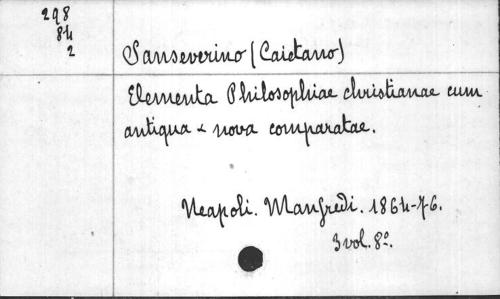 298
84
2
Sanseverino (Caietano)
Elementa Philosophiae christianae cum
antiqua & nova comparatae.
Neapoli. Manfredi. 1864-76.
3 vol. 8º.